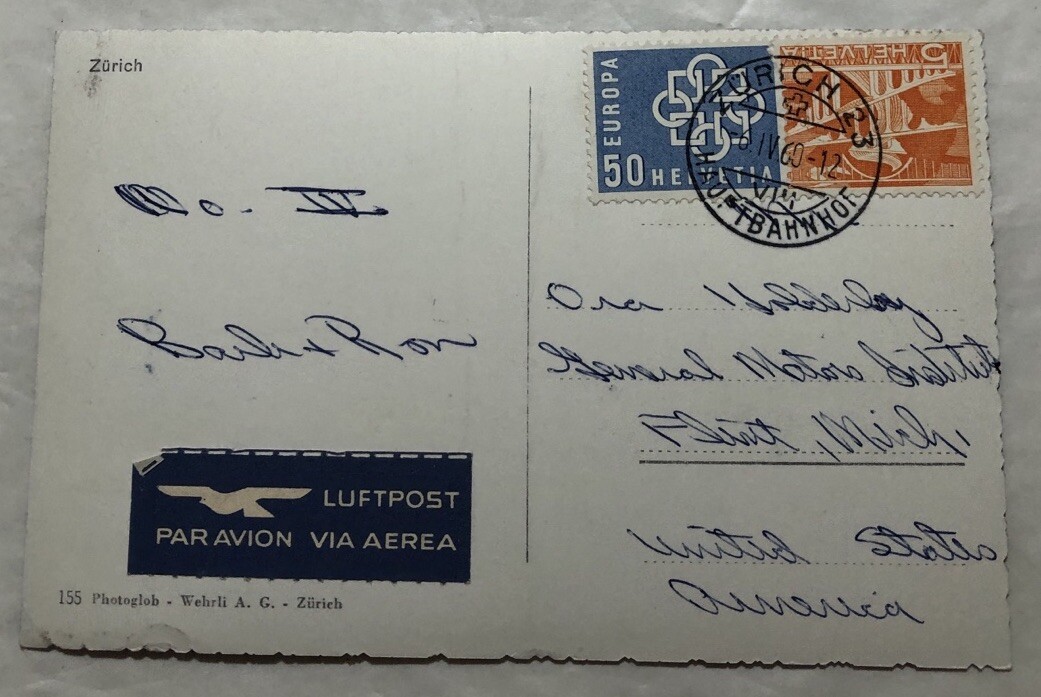 Zürich
EUROPA
50 HELVETIA
HELVETIA 5
ZÜRICH 23
-6.IV60-12
VIII
HAUPTBAHNHOF
No. III
Barb + Ron
Ora
General Motors Institute
Flint, Mich.
United States
America
LUFTPOST
PAR AVION VIA AEREA
155 Photoglob - Wehrli A. G. - Zürich